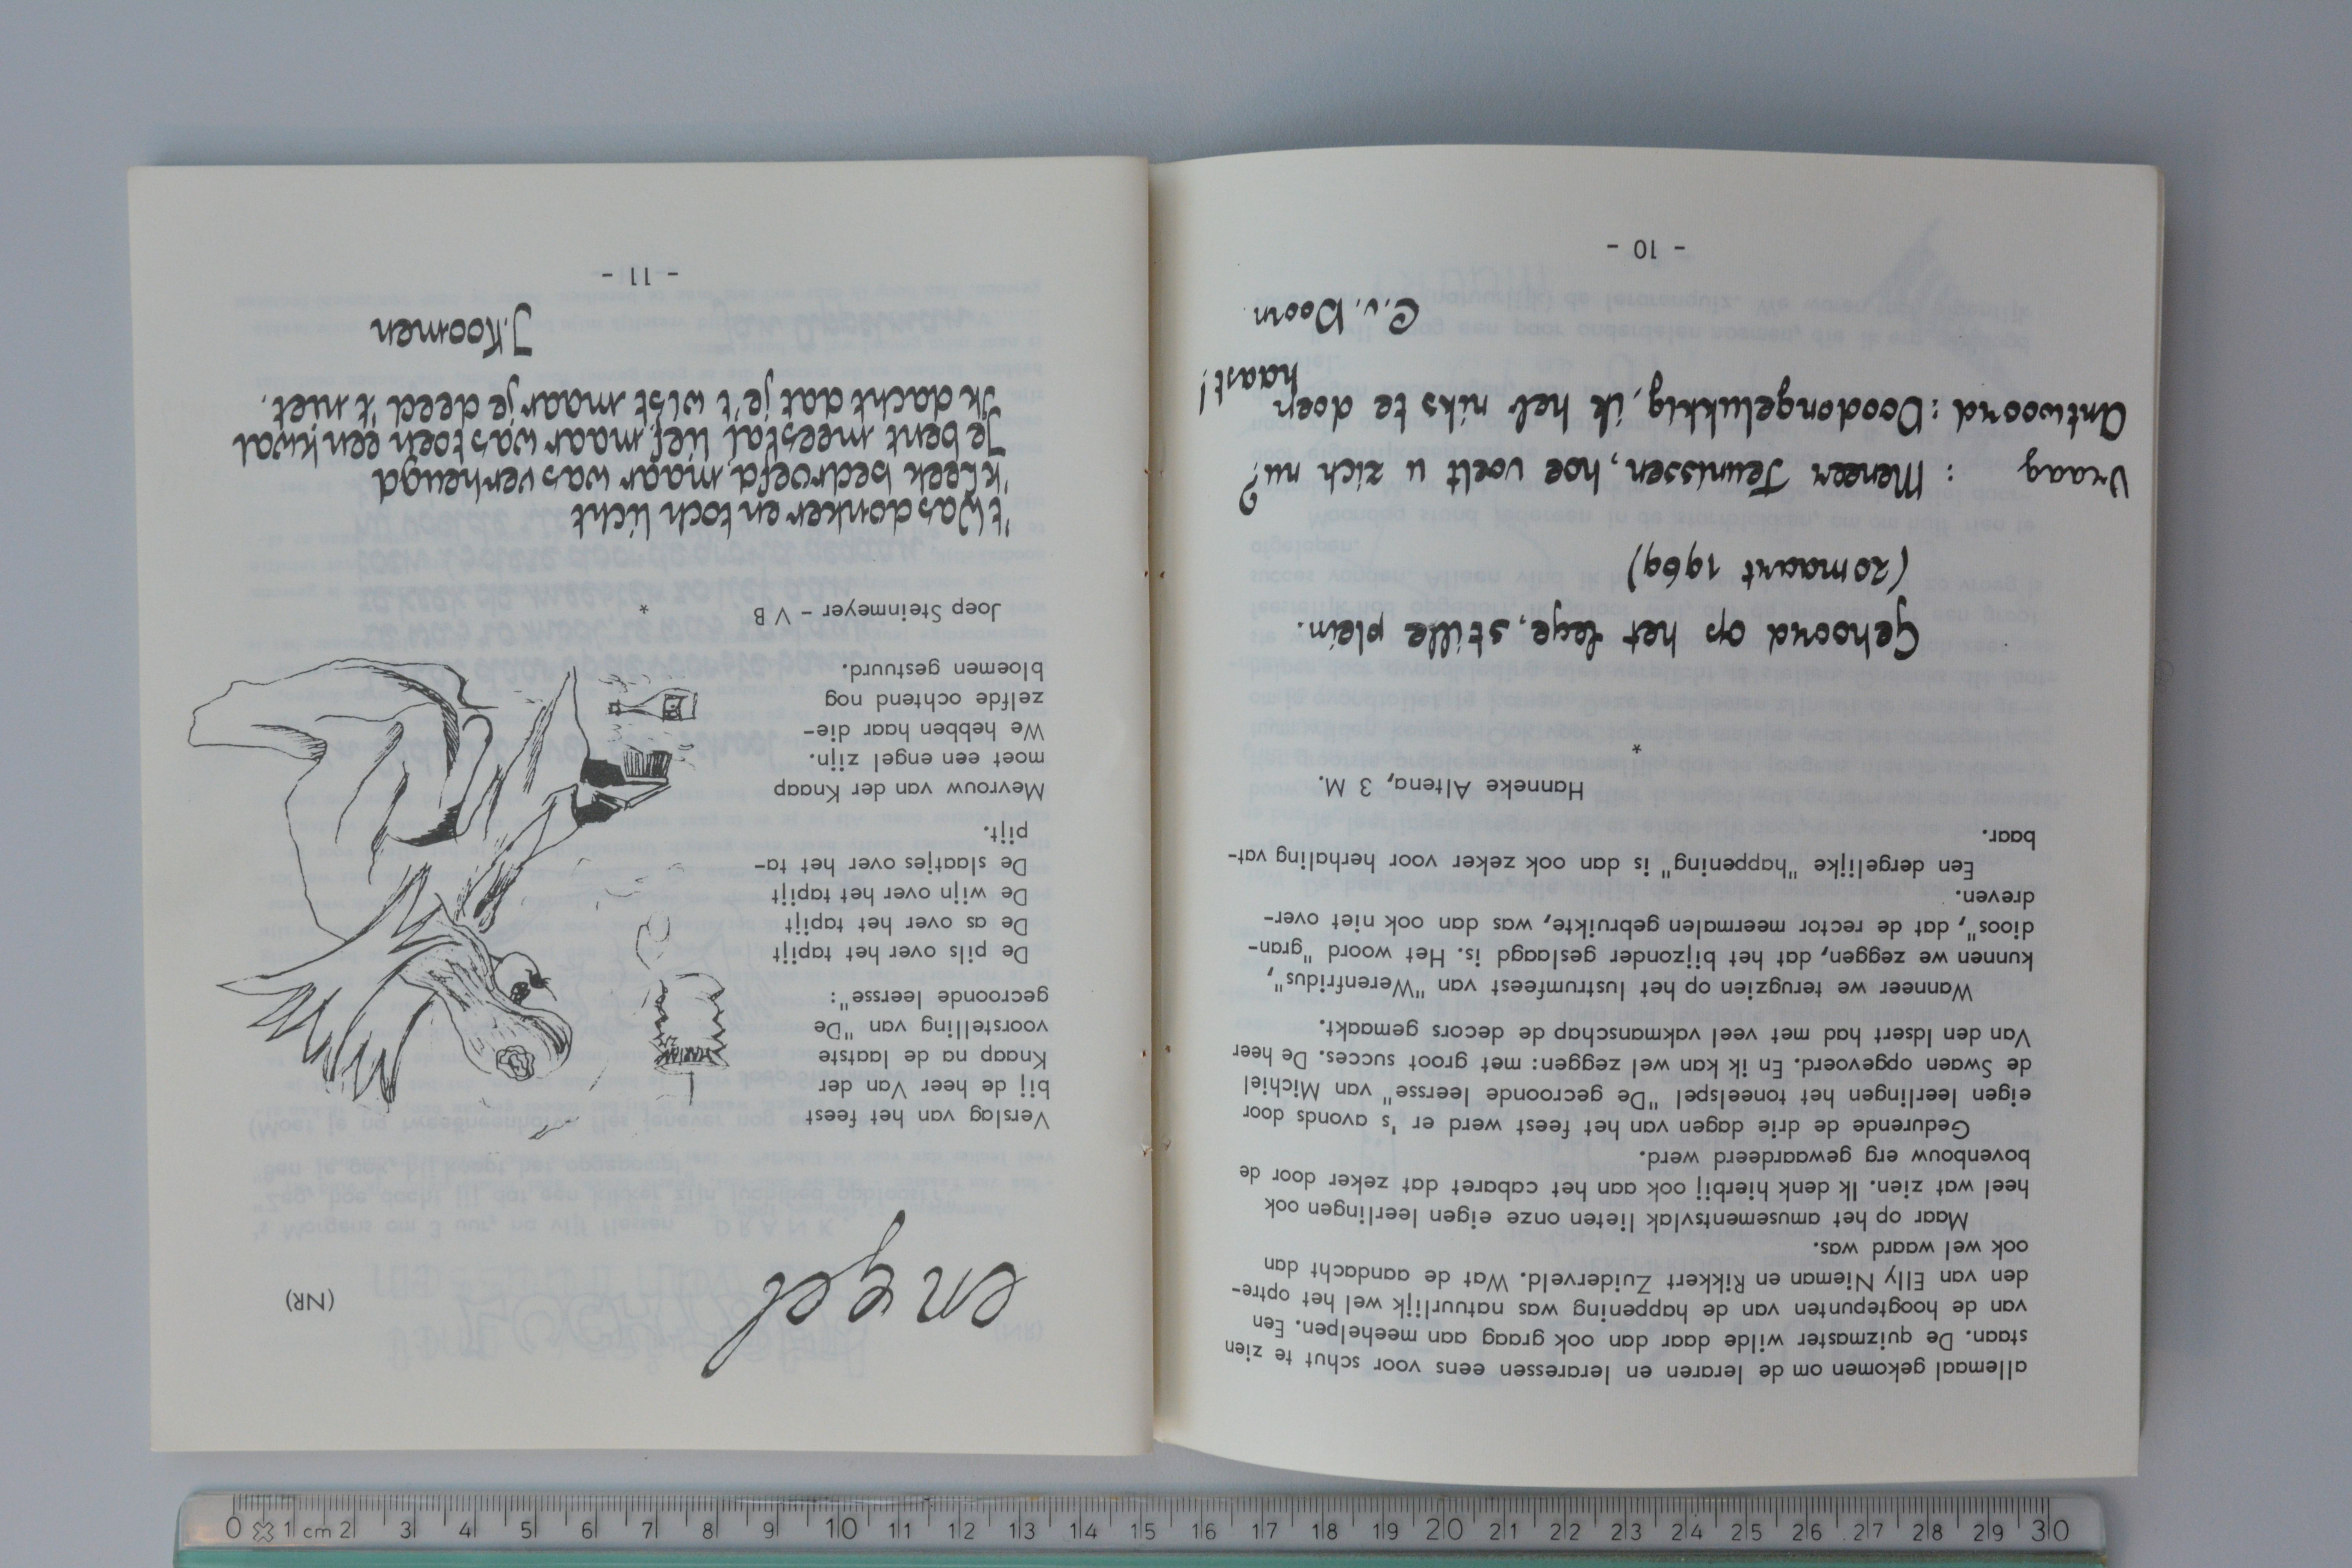 allemaal gekomen om de leraren en leraressen eens voor schut te zien
staan. De quizmaster wilde daar dan ook graag aan meehelpen. Een
van de hoogtepunten van de happening was natuurlijk wel het optre-
den van Elly Nieman en Rikkert Zuiderveld. Wat de aandacht dan
ook wel waard was.
Maar op het amusementsvlak lieten onze eigen leerlingen ook
heel wat zien. Ik denk hierbij ook aan het cabaret dat zeker door de
bovenbouw erg gewaardeerd werd.
Gedurende de drie dagen van het feest werd er 's avonds door
eigen leerlingen het toneelspel "De gecroonde leersse" van Michiel
de Swaen opgevoerd. En ik kan wel zeggen: met groot succes. De heer
Van den Idsert had met veel vakmanschap de decors gemaakt.
Wanneer we terugzien op het lustrumfeest van "Werenfridus",
kunnen we zeggen, dat het bijzonder geslaagd is. Het woord "gran-
dioos", dat de rector meermalen gebruikte, was dan ook niet over-
dreven.
Een dergelijke "happening" is dan ook zeker voor herhaling vat-
baar.
Hanneke Altena, 3 M.
*
Gehoord op het lege, stille plein.
(20 maart 1969)
Vraag : Meneer Teunissen, hoe voelt u zich nu?
Antwoord : Doodongelukkig, ik heb niks te doen
haast!
C.v. Doorn.
- 10 -
(NR)
Verslag van het feest
bij de heer Van der
Knaap na de laatste
voorstelling van "De
gecroonde leersse":
De pils over het tapijt
De as over het tapijt
De wijn over het tapijt
De slaatjes over het ta-
pijt.
Mevrouw van der Knaap
moet een engel zijn.
We hebben haar die-
zelfde ochtend nog
bloemen gestuurd.
Joep Steinmeyer - V B
*
't Was donker en toch licht
'k Leek bedroefd, maar was verheugd
Je bent meestal lief, maar was toen een kwal
Ik dacht dat je 't wist maar je deed 't niet.
J. Koomen
- 11 -
0 1 cm 2 3 4 5 6 7 8 9 10 11 12 13 14 15 16 17 18 19 20 21 22 23 24 25 26 27 28 29 30